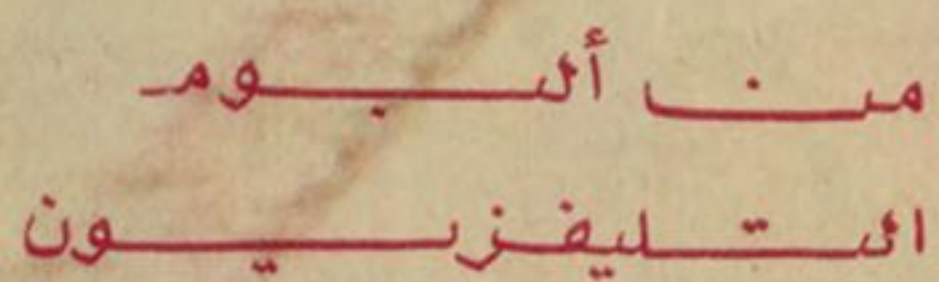 من ألبوم
التليفزيون